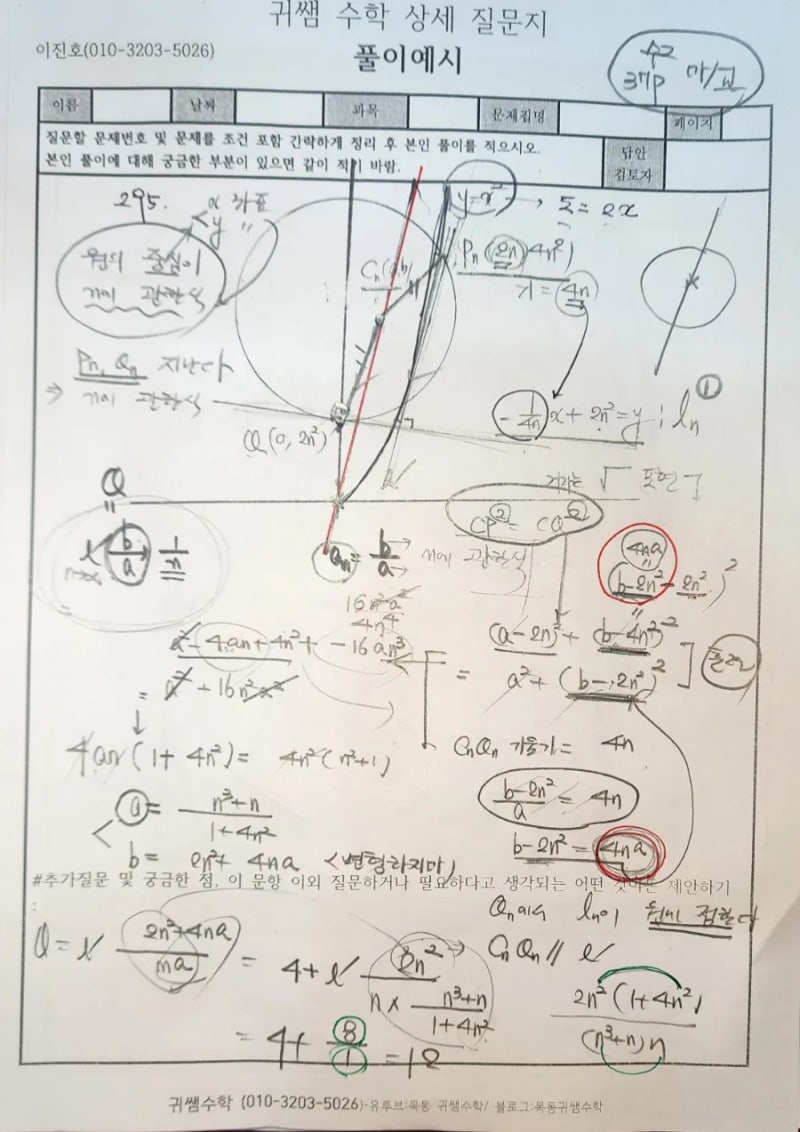 귀쌤 수학 상세 질문지
이진호(010-3203-5026)
풀이예시
수2
37p 마/교
이름 날짜 과목 문제집명 페이지
질문할 문제번호 및 문제를 조건 포함 간략하게 정리 후 본인 풀이를 적으시오.
본인 풀이에 대해 궁금한 부분이 있으면 같이 적기 바람.
답안
검토자
295.
x 좌표
y 〃
원의 중심이
n에 관한식
y=x²
Pn(2n, 4n²)
기=4n
Pn, Qn 지난다
⇒ n에 관한식
Q(0, 2n²)
-1/4n x + 2n² = y : ln ①
Q
b/a 1/n
an = b/a → n에 관한식
CP² = CQ²
4na
(b-2n²-2n²)²
16n²a²
4n⁴
a² - 4an + 4n² + -16an³
= a² + 16n²a²
(a-2n)² + (b-4n²)²
= a² + (b-2n²)²
4an(1+4n²) = 4n²(n²+1)
CnQn 기울기 = 4n
a = n³+n / 1+4n²
b-2n² / a = 4n
b = 2n²+4na <변형하지마>
b-2n² = 4na
#추가질문 및 궁금한 점, 이 문항 이외 질문하거나 필요하다고 생각되는 어떤 것이든 제안하기
Qn에서 ln이 원에 접한다
CnQn // l
Q = 2n²+4na / na = 4 + 2n² / n × n³+n / 1+4n²
2n²(1+4n²) / (n³+n)n
= 4 + 8/1 = 12
귀쌤수학 (010-3203-5026)-유투브:목동 귀쌤수학/ 블로그:목동귀쌤수학